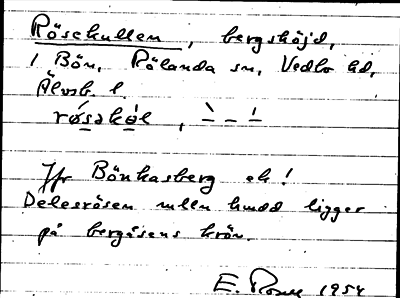 Röskullen, bergshöjd,
i Bön, Rölanda sn, Vedbo hd,
Älvsb. l.
Jfr Bönhasberg ek!
Delesrösen mlln hmdd ligger
på bergåsens krön.
E. Rosell 1954